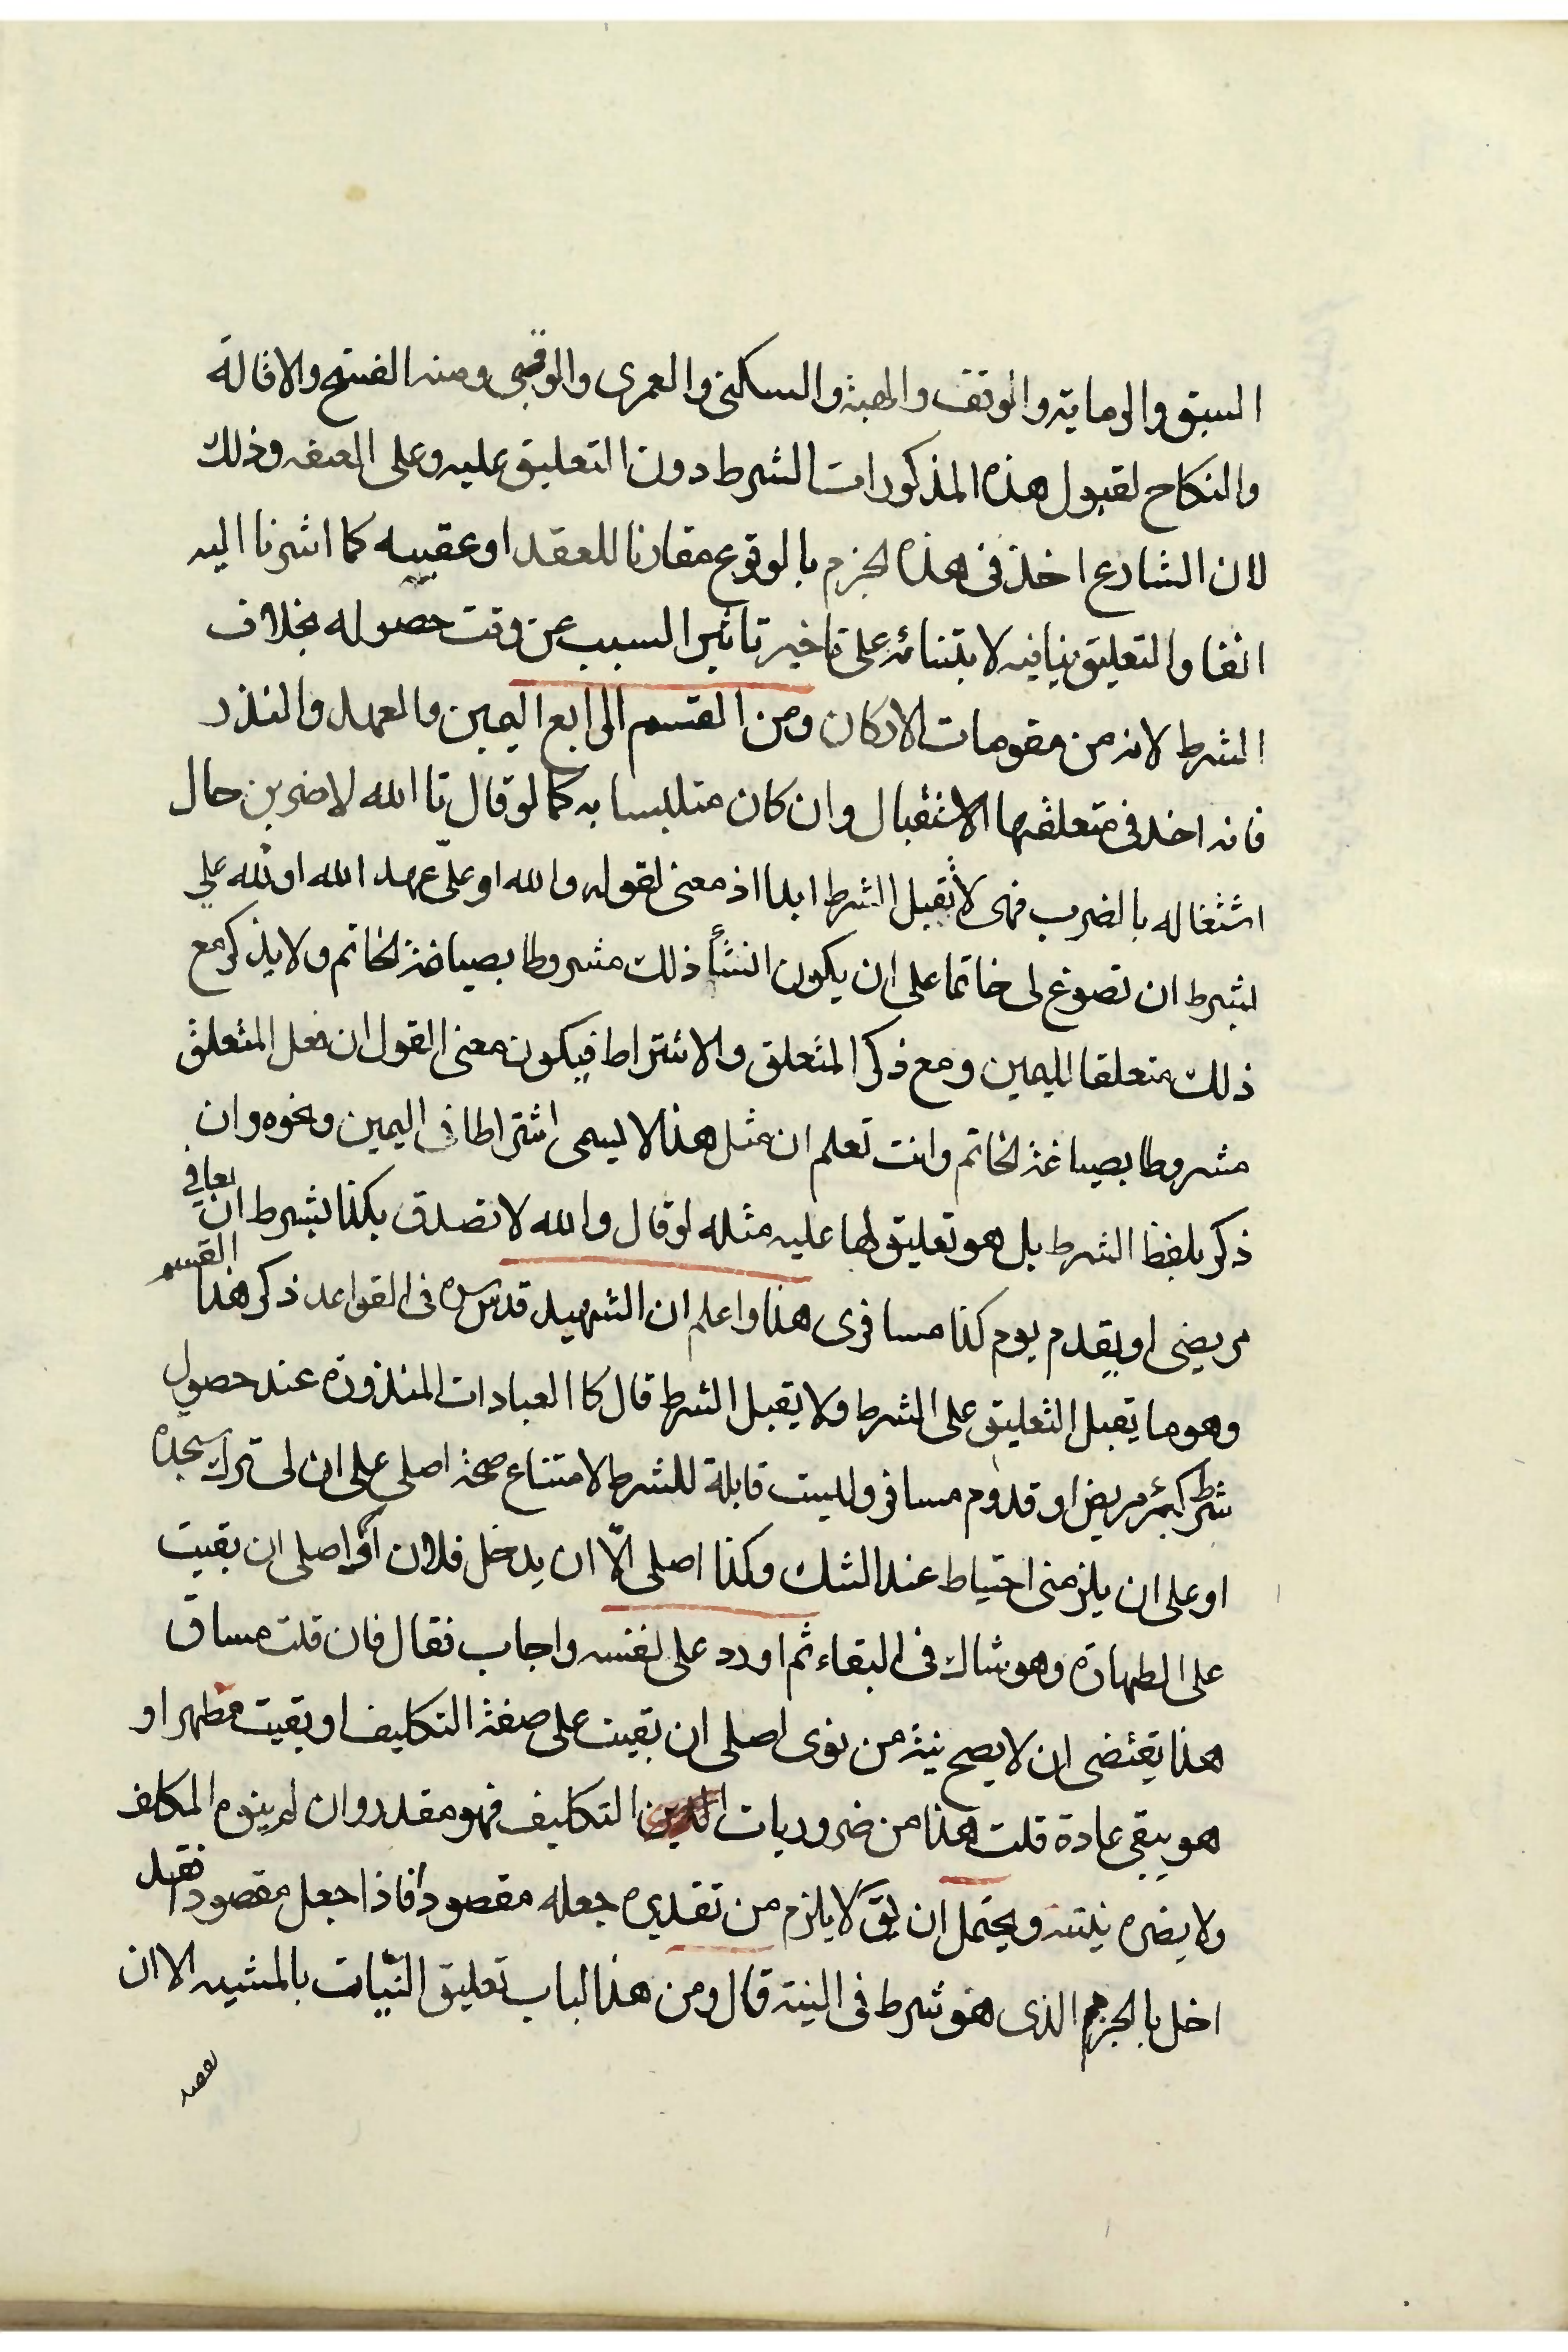 السبق والرماية والوقف والهبة والسكنى والعمرى والرقبى ومنه الفسخ والاقالة
والنكاح لقبول هذه المذكورات الشرط دون التعليق عليه وعلى الصفه وذلك
لان الشارع اخذ فى هذه الجزم بالوقوع مقارنا للعقد او عقيبه كما اشرنا اليه
انفا والتعليق ينافيه لابتنائه على تاخير تاثير السبب عن وقت حصوله بخلاف
الشرط لانه من مقومات الاركان ومن القسم الرابع اليمين والعهد والنذر
فانه اخذ فى متعلقها الاستقبال وان كان متلبسا به كما لو قال تا الله لاضربن حال
اشتغاله بالضرب فهى لا تقبل الشرط ابدا اذ معنى لقوله والله او علىّ عهد الله او لله علي
بشرط ان تصوغ لى خاتما على ان يكون انشأ ذلك مشروطا بصياغة الخاتم ولا يذكر مع
ذلك متعلقا لليمين ومع ذكر المتعلق والاشتراط فيكون معنى القول ان فعل المتعلق
مشروطا بصياغة الخاتم وانت تعلم ان مثل هذا لا يسمى اشتراطا فى اليمين ونحوه وان
ذكر بلفظ الشرط بل هو تعليق لها عليه مثله لو قال والله لاتصدق بكذا بشرط ان يعافي
مريضى او يقدم يوم كذا مسافرى هذا واعلم ان الشهيد قدس سره فى القواعد ذكر هذا القسم
وهو ما تقبل التعليق على الشرط ولا يقبل الشرط قال كا العبادات المنذورة عند حصول
شرط كبرء مريض او قدوم مسافر وليست قابلة للشرط لامتناع صحة اصلى على ان لى ترك سجدة
او على ان يلزمنى احتياط عند الشك وكذا اصلى الّا ان يدخل فلان او اصلى ان بقيت
على الطهارة وهو شاك فى البقاء ثم اورد على نفسه واجاب فقال فان قلت مساق
هذا يقتضى ان لا يصح نية من نوى اصلى ان بقيت على صفة التكليف او بقيت مطهر او
هو يبقى عادة قلت هذا من ضروريات التكليف فهو مقدر وان لم ينوه المكلف
ولا يضره نيته ويحتمل ان يق لا يلزم من تقديره جعله مقصودا فاذا جعل مقصودا فقد
اخل بالجزم الذى هو شرط فى النية قال ومن هذا الباب تعليق النيّات بالمشيه الا ان